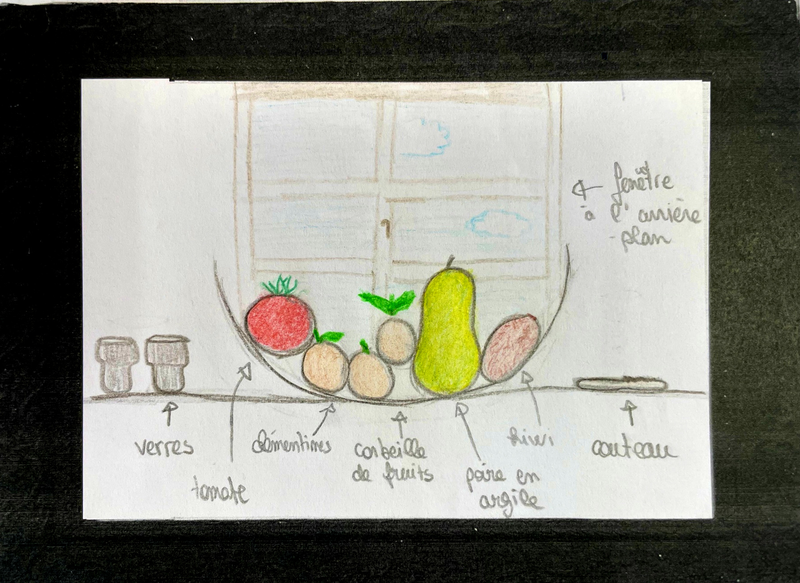 ← fenêtre
à l'arrière
-plan
verres
tomate
clémentines
corbeille
de fruits
poire en
argile
kiwi
couteau